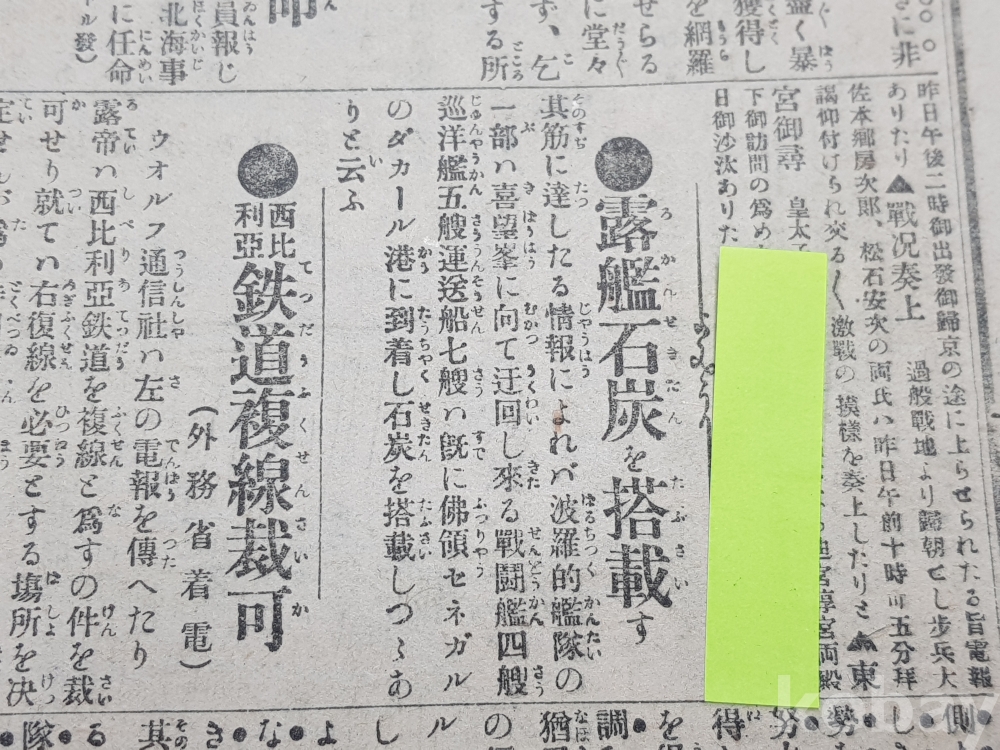 昨日午後二時御出發御歸京の途に上らせられたる旨電報
ありたり▲戰况奏上 過般戰地より歸朝せし步兵大
佐本郷房次郎、松石安次の両氏ハ昨日午前十時
五分拜
謁仰付けられ交る〳〵激戰の模樣を奏上したりと▲東
宮御尋 皇太子
宮淳宮両殿
下御訪問の爲め
日御沙汰ありた
●露艦石炭を搭載す
其筋に達したる情報によれバ波羅的艦隊の
一部ハ喜望峯に向て迂回し來る戰闘艦四艘
巡洋艦五艘運送船七艘ハ既に佛領セネガル
のダカール港に到着し石炭を搭載しつゝあ
りと云ふ
●西比利亞鉄道複線裁可
(外務省着電)
ウオルフ通信社ハ左の電報を傳へたり
露帝ハ西比利亞鉄道を複線と爲すの件を裁
可せり就てハ右復線を必要とする塲所を決
に非
盡く暴
獲得し
を網羅
せらる
に堂々
ず、乞
する所
命
員報じ
北海事
に任命
ール發)
側●
し●
勢●
得
を
調●
猶
の
ル
し
よ
な●
き●
其
る
隊●